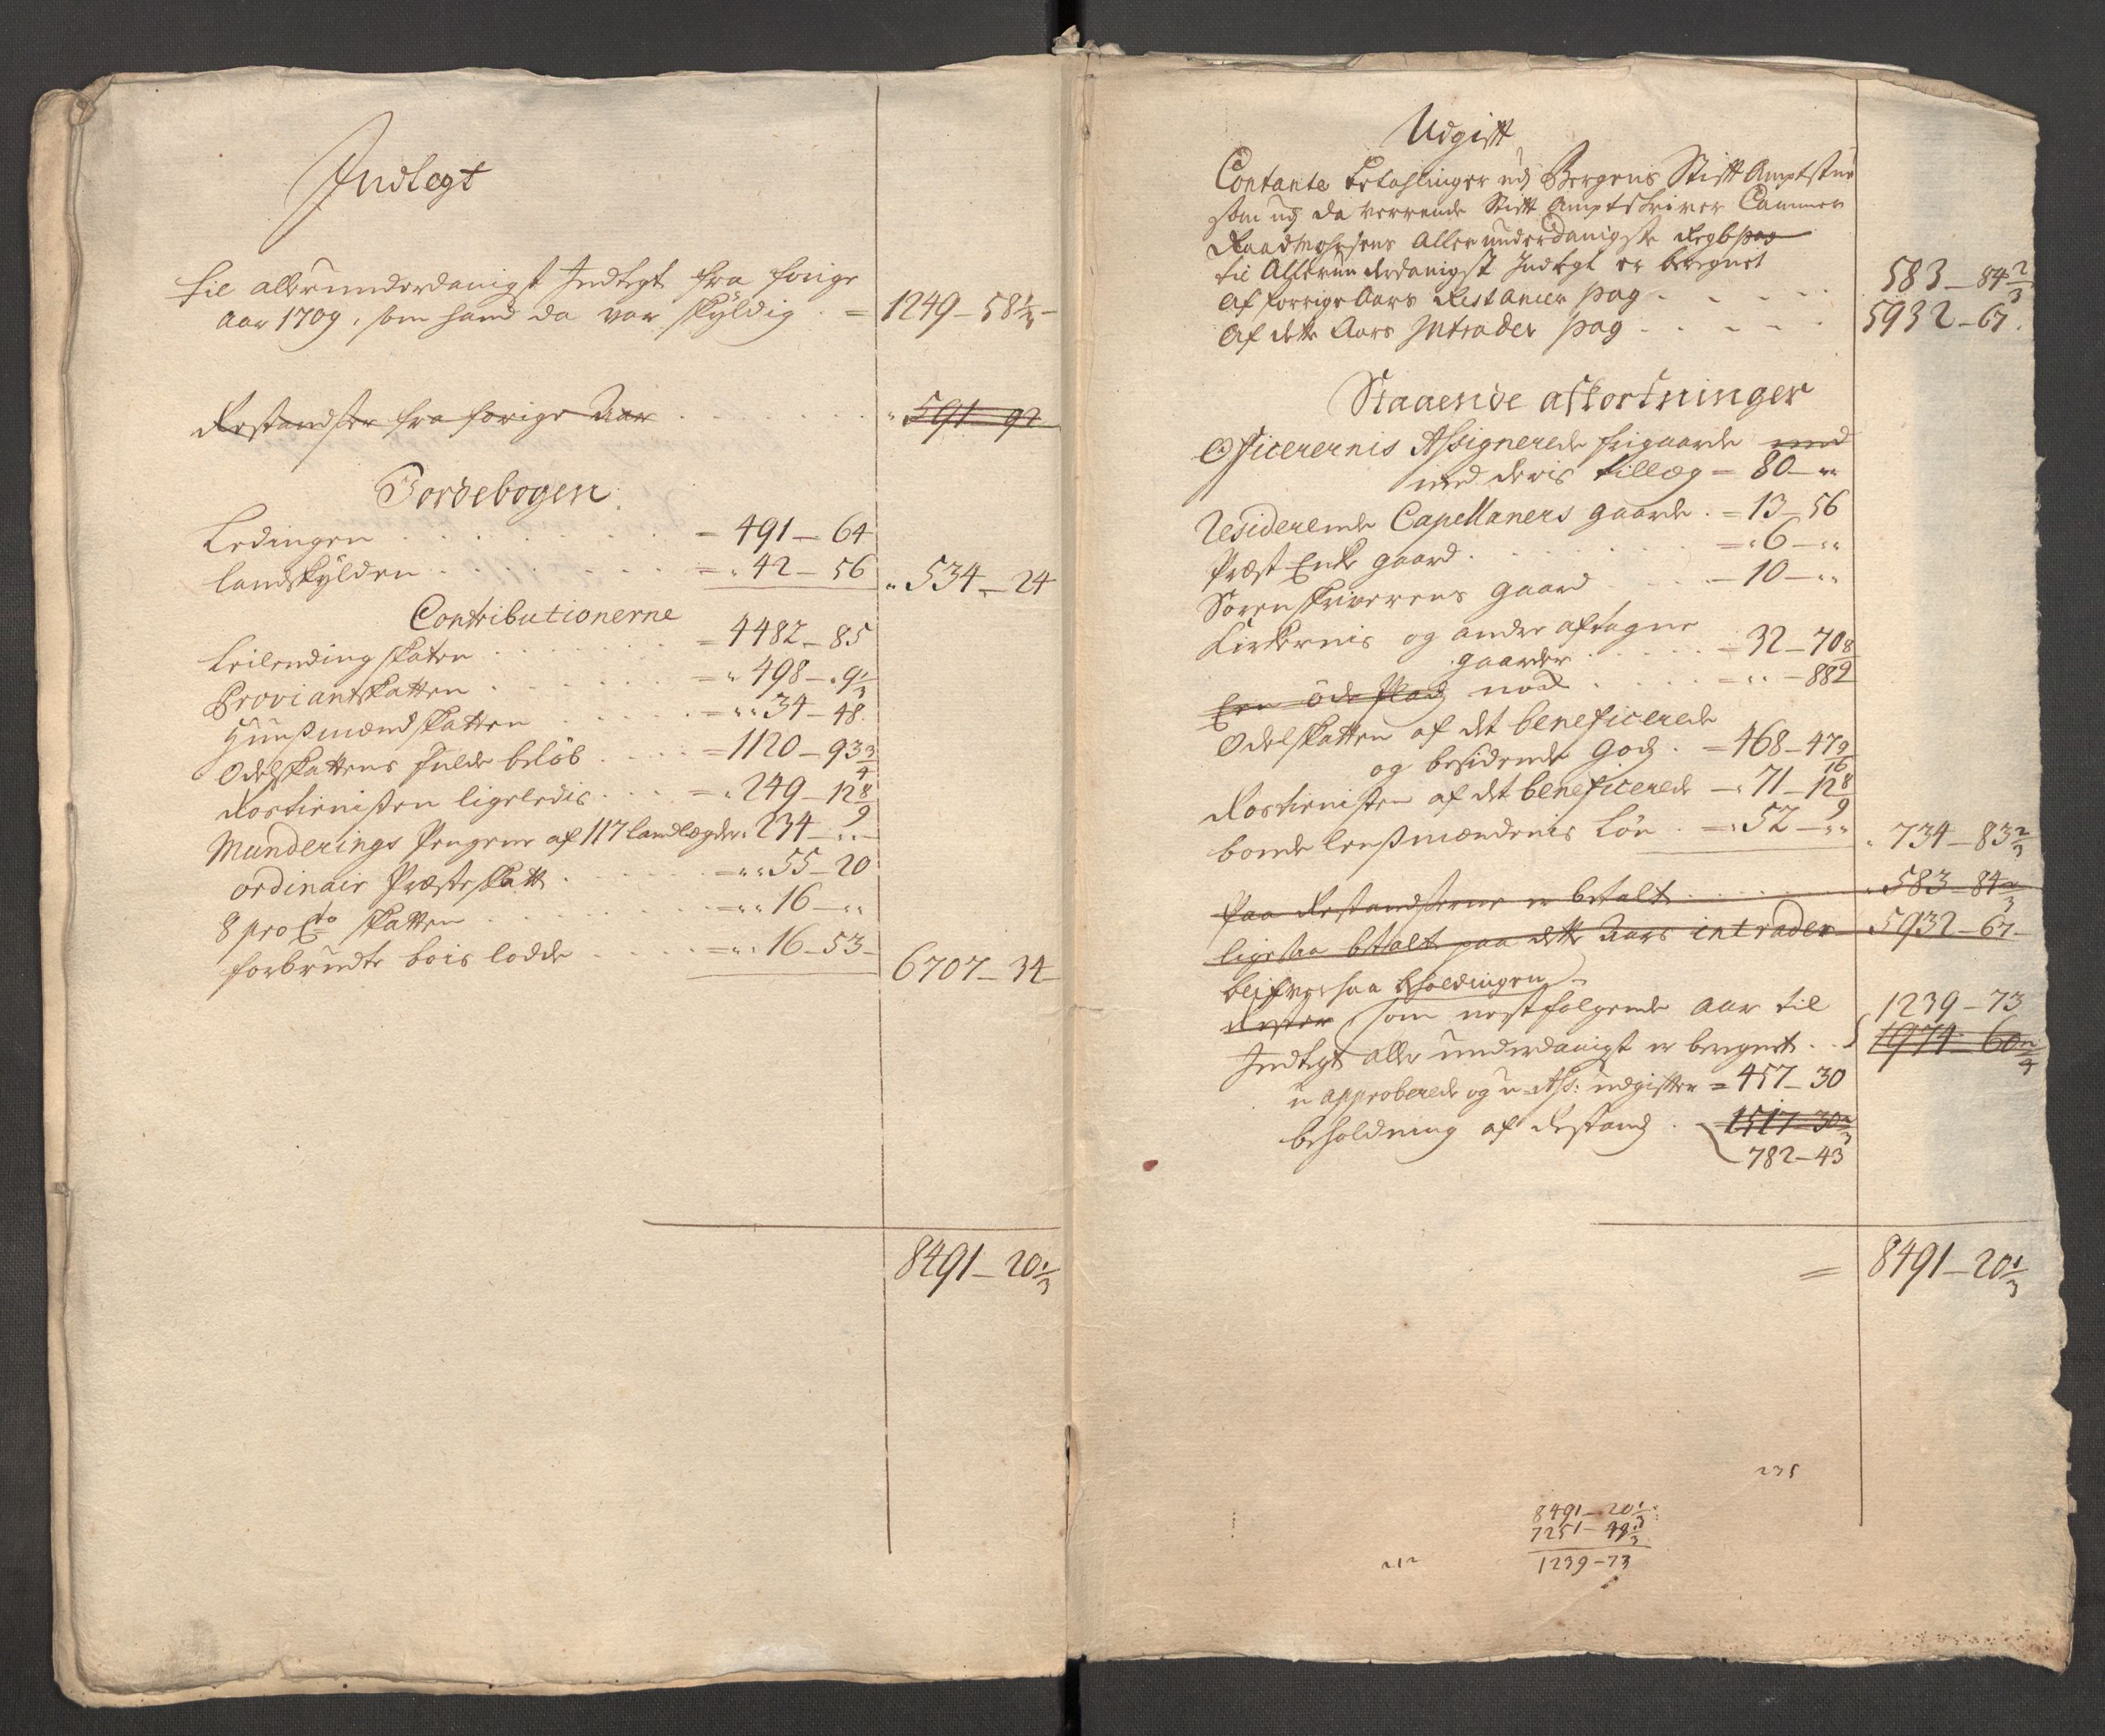 Indtegt
til allerunderdanigst Indtegt fra forige
aar 1709, som hand da var skÿldig . = 1249 - 58 1/3 -
Restandser fra forige Aar . . . . . . . „ 591 - 92
Jordebogen
Ledingen . . . . . . . = 491 - 64
Landskÿlden . . . . . . . = „ 42 - 56 „ 534 - 24
Contributionerne
Leilending skaten . . . . . . = 4482 - 85
Proviantskatten . . . . . = „ 498 - „ 9 1/3
Huusmændskatten . . . . = „ „ 34 - 48
Odelskattens fulde beløb . . . . = 1120 - 93 3/4
Rostienisten ligeledis . . . = „ 249 - 12 8/9
Munderings Pengene af 117 landlægder „ 234 - „ „
ordinair Præsteskatt . . . . . = „ „ 55 - 20
8 pro Cto skatten . . . . . . = „ „ 16 - „ „
forbrudte bois lodde . . . . = „ „ 16 - 53 - 6707 - 34 -
8491 - 20 1/3
Udgifft
Contante betahlinger udj Bergens Stifft Amptstue
som udj da verrende Stifft Amptskriver Cammer
Raad allerunderdanigste pag
til Allerunderdanigst Indtegt er beregnet
af forrige Aars Restancer pag . . . . . 583 - 84 2/3
af dette Aars Intrader pag . . . . . 5932 - 67.
Staaende afkortninger
Officerernis Assignerede frigaarde med
med deris tillæg = 80 - „
Residerende Capellaners gaarde . = 13 - 56
Præst Enke gaard . . . . . . = „ 6 - „ „
Sorenskriverens gaard . . . . - 10 - „ „
Kirkernis og andre aftagne
gaarder . . . . . = 32 - 70 8/9
Een øde Plads nock . . . . = „ „ - 88
Odelskatten af det beneficerede
og besidende gods . = 468 - 47 9/16
Rostienisten af det beneficerede - „ 71 - 12 8/9
bonde lensmændenis Løn . = „ 52 - „ „ „ 734 - 83 2/3
Paa Restandserne er betalt . . . . . . „ 583 - 84 2/3
ligesaa betalt paa dette Aars intrader - 5932 - 67 -
blifver saa beholdingen
Rester som nestfølgende aar til 1239 - 73
Indtegt aller underdanigst er beregnet . . 1974 - 60
u approberede og u-Ass: udgiffter = 457 - 30
beholdning af Restands . 1517 - 30 2/3
782 - 43
= 8491 - 20 1/3
235
8491 - 20 1/3
7251 - 43 1/3
1239 - 73
212